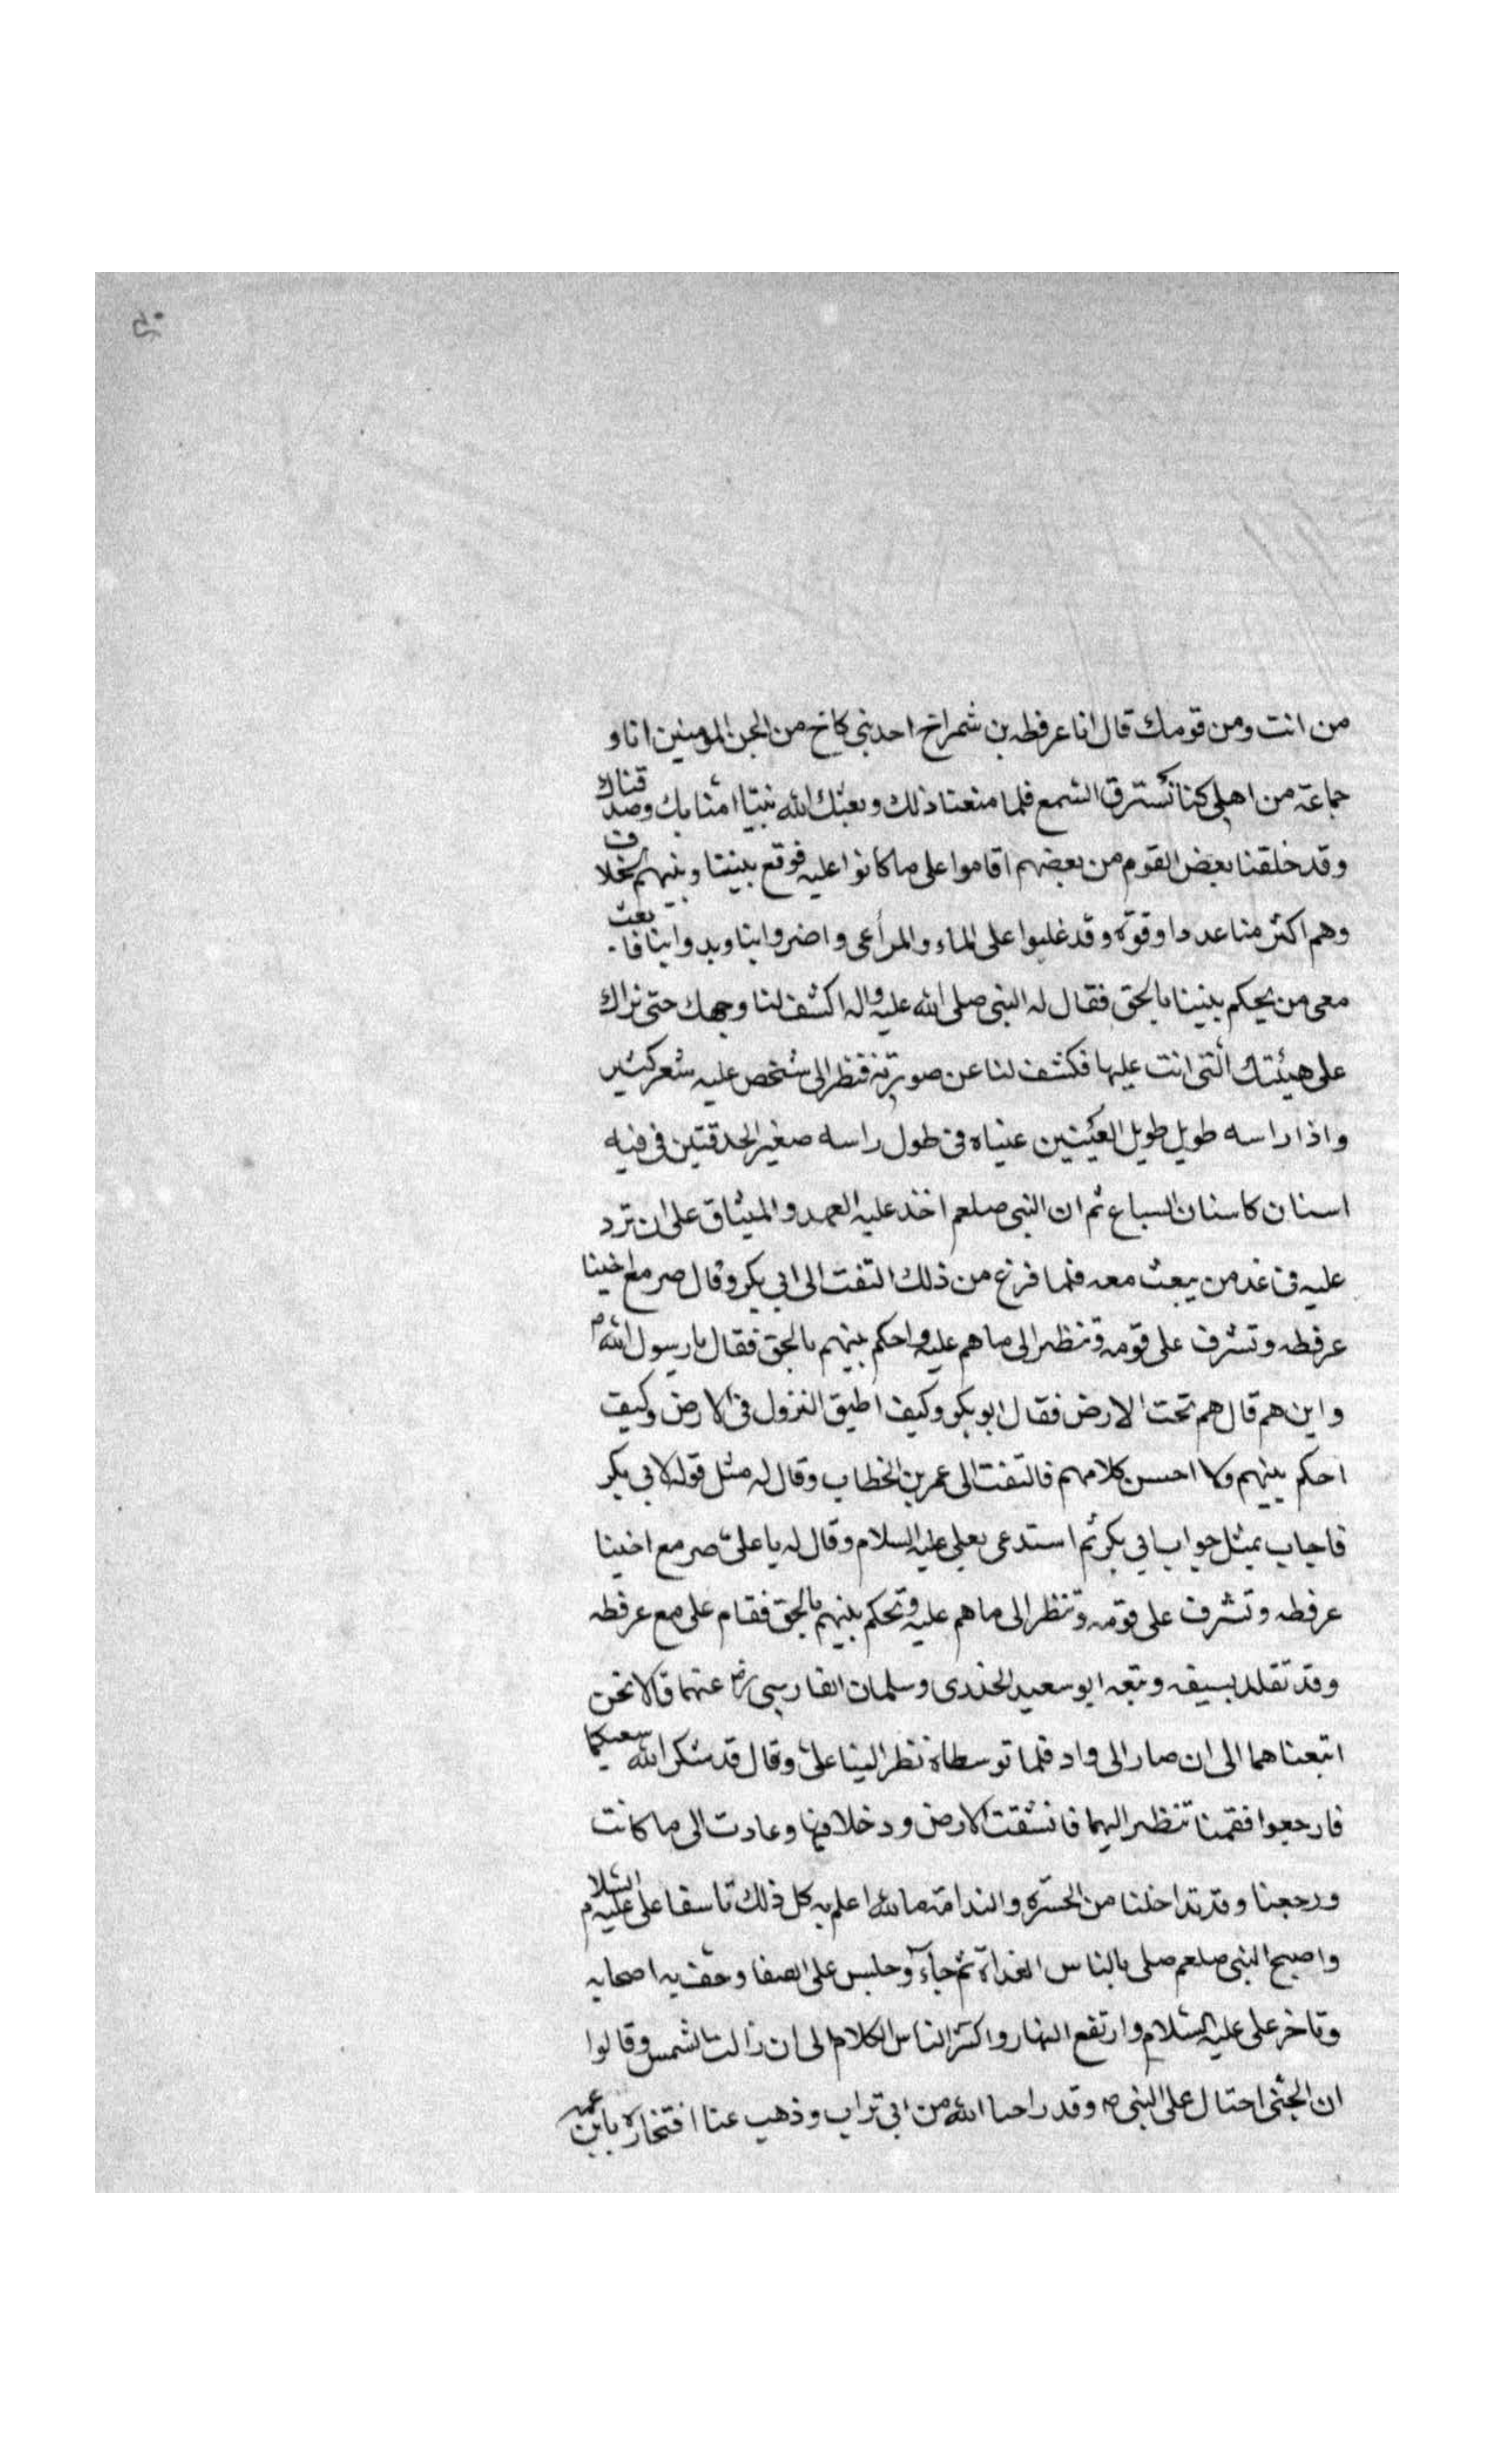 من انت ومن قومك قال انا عرفطه بن شمراخ احد بنى كاخ من الجن المؤمنين انا و
جماعة من اهلى كنا نسترق السمع فلما منعنا ذلك وبعثك الله نبيا امنا بك وصدقناك
وقد خلقنا بعض القوم من بعضهم اقاموا على ما كانوا عليه فوقع بيننا وبينهم الخلاف
وهم اكثر منا عددا وقوة وقد غلبوا على الماء والمراعى واضروا بنا وبدوابنا فابعث
معى من يحكم بيننا بالحق فقال له النبى صلى الله عليه واله اكشف لنا وجهك حتى نراك
على هيئتك التى انت عليها فكشف لنا عن صورته فنظر الى شخص عليه شعر كثير
واذا راسه طويل طويل العينين عيناه فى طول راسه صغير الحدقتين فى فيه
اسنان كاسنان السباع ثم ان النبى صلعم اخذ عليه العهد والميثاق على ان ترد
عليه فى غد من يبعث معه فلما فرغ من ذلك التفت الى ابى بكر وقال صر مع اخينا
عرفطه وتشرف على قومه وتنظر الى ما هم عليه واحكم بينهم بالحق فقال يا رسول الله
واين هم قال هم تحت الارض فقال ابو بكر وكيف اطيق النزول فى الارض وكيف
احكم بينهم ولا احسن كلامهم فالتفت الى عمر بن الخطاب وقال له مثل قوله لابى بكر
فاجاب بمثل جواب ابى بكر ثم استدعى بعلى عليه السلام وقال له يا على صر مع اخينا
عرفطه وتشرف على قومه وتنظر الى ما هم عليه وتحكم بينهم بالحق فقام على مع عرفطه
وقد تقلد بسيفه وتبعه ابو سعيد الخدرى وسلمان الفارسى رض عنهما قالا نحن
اتبعناهما الى ان صار الى واد فلما توسطاه نظر الينا على وقال قد شكر الله سعيكما
فارجعوا فقمنا ننظر اليهما فانشقت الارض ودخلا فيها وعادت الى ما كانت
ورجعنا وقد تداخلنا من الحسرة والندامة ما لله اعلم به كل ذلك تاسفا على على عليه السلام
واصبح النبى صلعم صلى بالناس الغداة ثم جاء وجلس على الصفا وحف به اصحابه
وتاخر على عليه السلام وارتفع النهار واكثر الناس الكلام الى ان زالت الشمس وقالوا
ان الجنى احتال على النبى ص وقد راحنا الله من ابى تراب وذهب عنا افتخاره بابن عمه